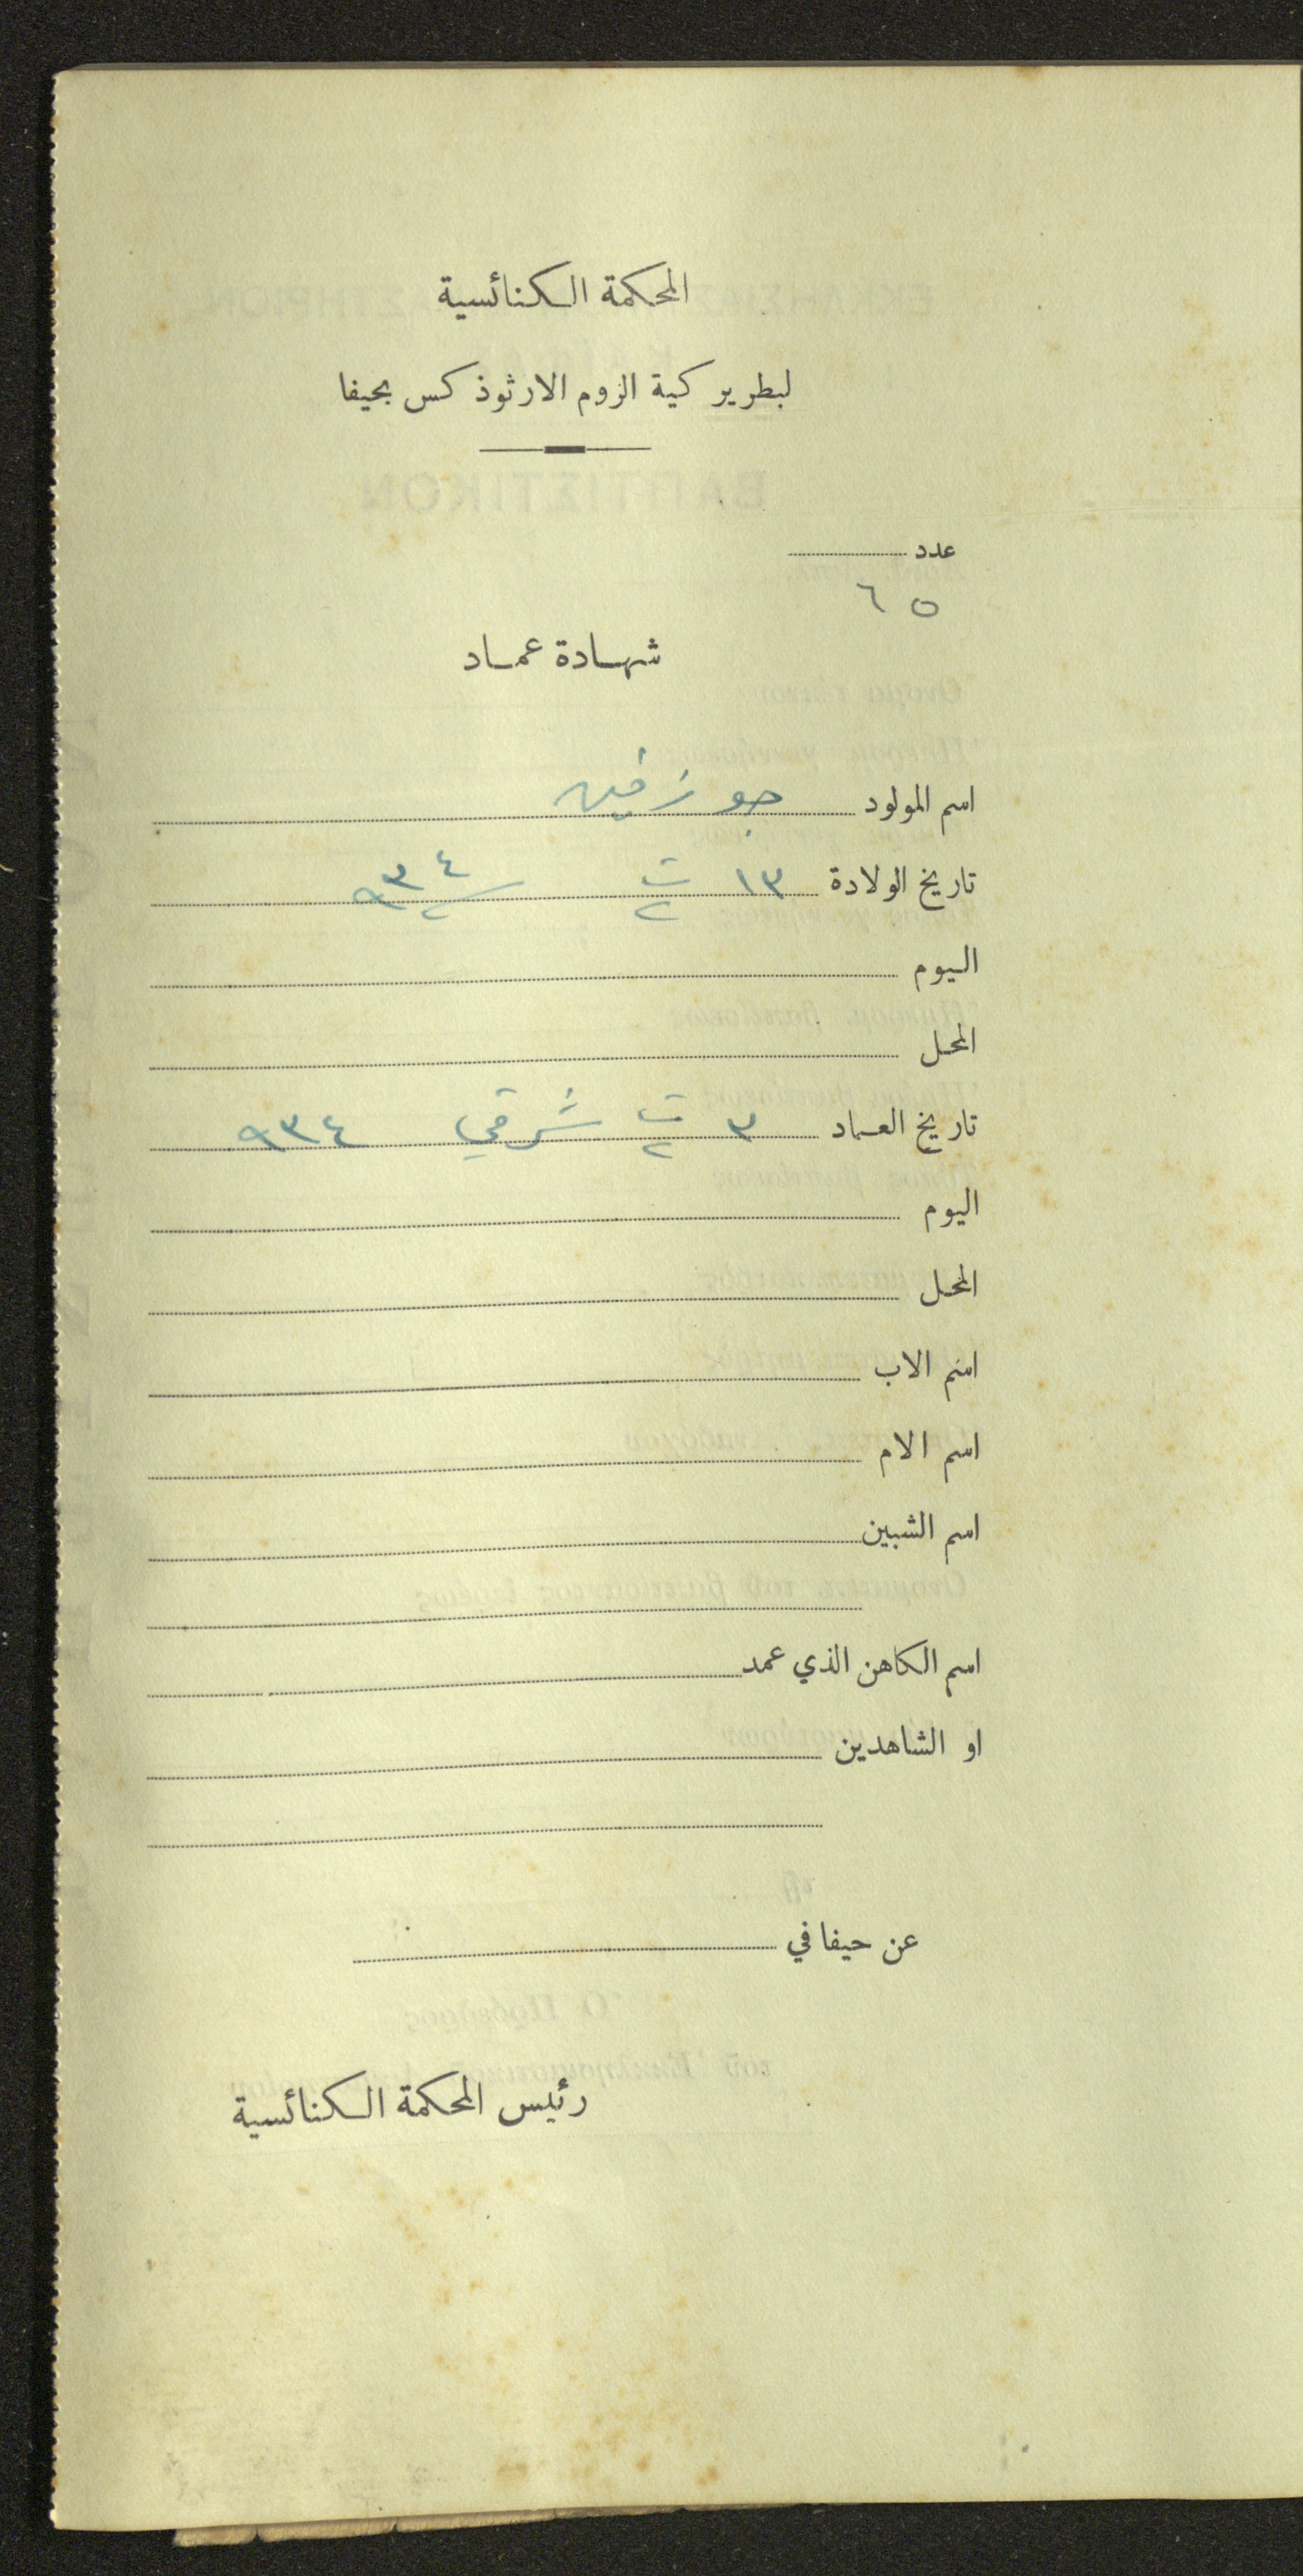 المحكمة الكنائسية
لبطريركية الروم الارثوذكس بحيفا
عدد
٦٥
شهادة عماد
اسم المولود جوزفين
تاريخ الولادة ١٣ ت٢ ٩٣٤
اليوم
المحل
تاريخ العماد ٣ ت٢ شرقي ٩٣٤
اليوم
المحل
اسم الاب
اسم الام
اسم الشبين
اسم الكاهن الذي عمد
او الشاهدين
عن حيفا في
رئيس المحكمة الكنائسية